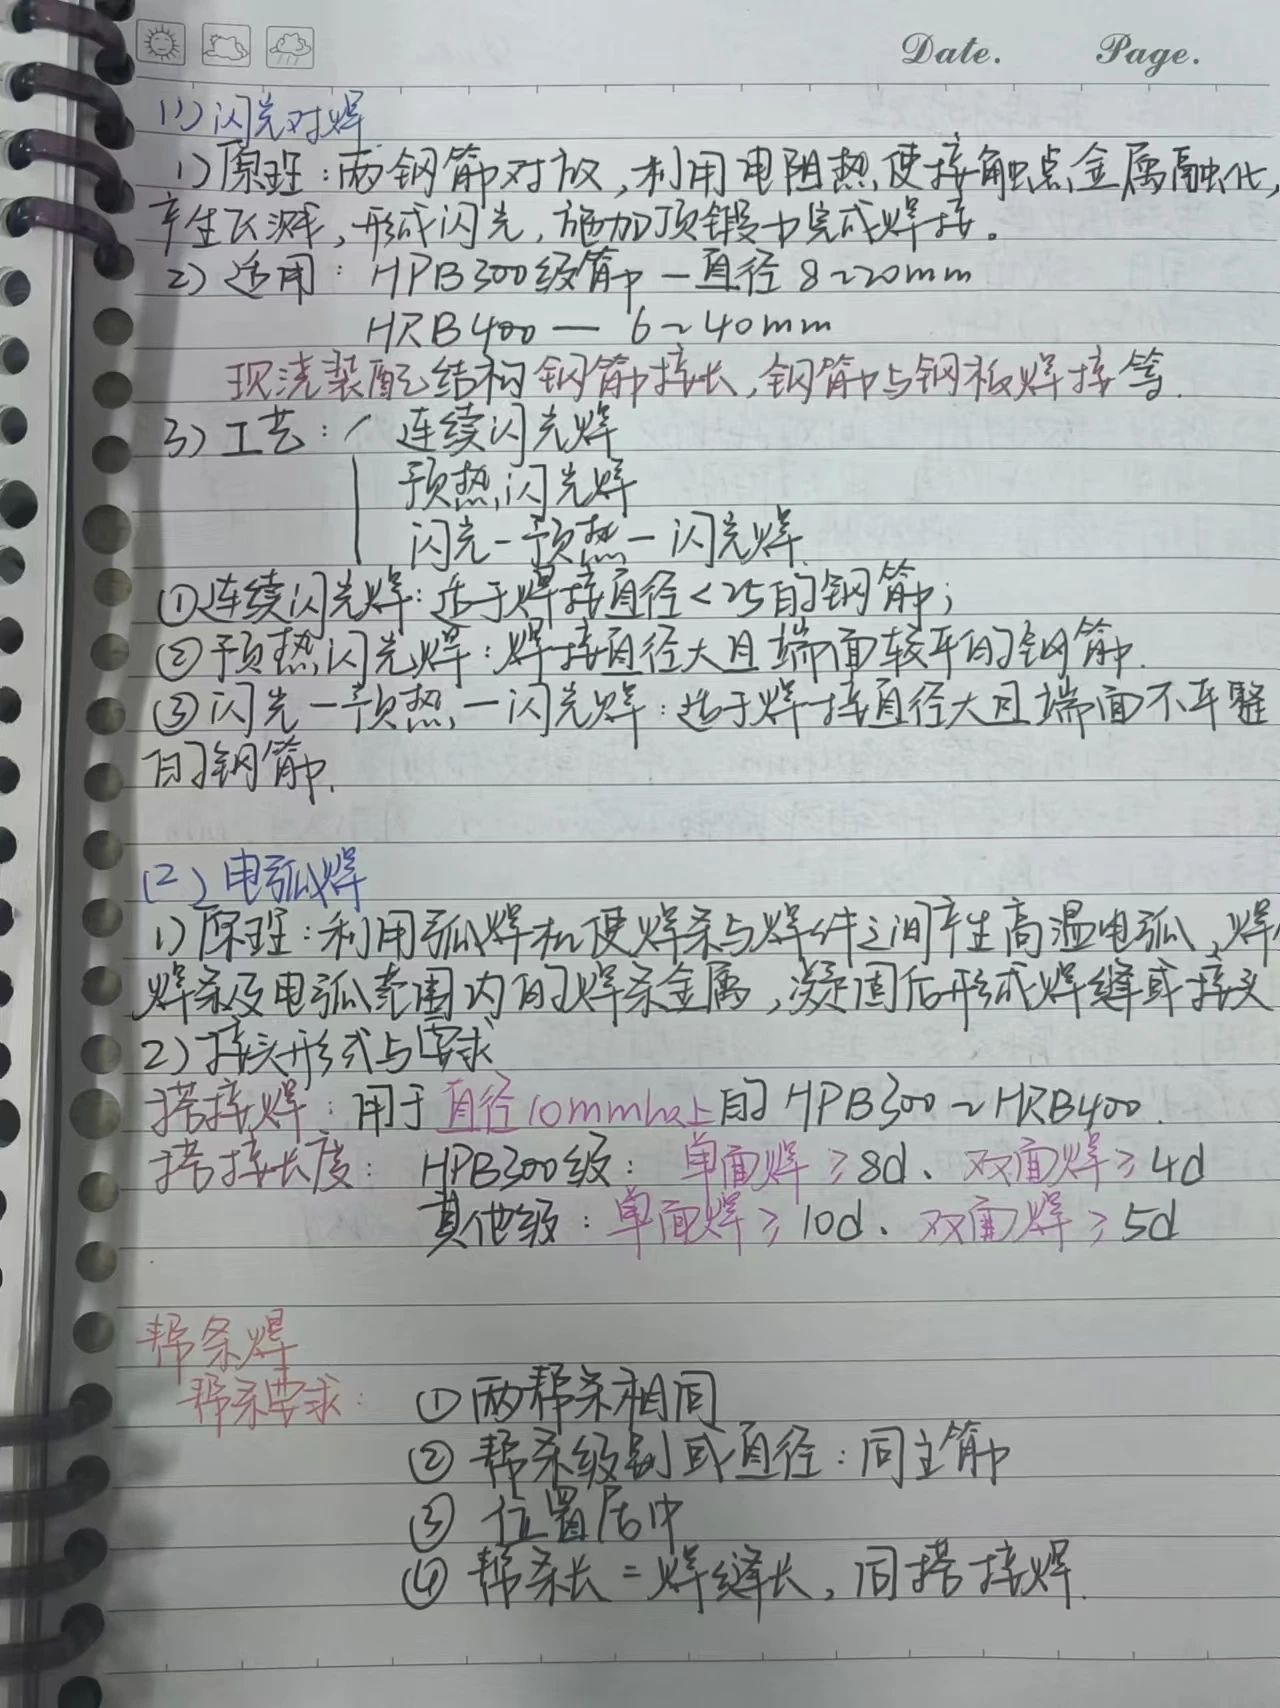 Date. Page.
(1) 闪光对焊
1) 原理：两钢筋对放，利用电阻热使接触点金属融化，
产生飞溅，形成闪光，施加顶锻力完成焊接。
2) 适用：HPB300级筋 — 直径 8~20mm
HRB400 — 6~40mm
现浇装配结构钢筋接长，钢筋与钢板焊接等.
3) 工艺：连续闪光焊
预热闪光焊
闪光-预热-闪光焊.
①连续闪光焊：适于焊接直径<25的钢筋；
②预热闪光焊：焊接直径大且端面较平的钢筋.
③闪光-预热-闪光焊：适于焊接直径大且端面不平整
的钢筋.
(2) 电弧焊
1) 原理：利用弧焊机使焊条与焊件之间产生高温电弧，焊
焊条及电弧范围内的焊条金属，凝固后形成焊缝或接头
2) 接头形式与要求
搭接焊：用于直径10mm以上的HPB300~HRB400.
搭接长度：HPB300级：单面焊≥8d、双面焊≥4d
其他级：单面焊≥10d、双面焊≥5d
帮条焊
帮条要求：①两帮条相同
②帮条级别或直径：同主筋
③位置居中
④帮条长=焊缝长，同搭接焊.